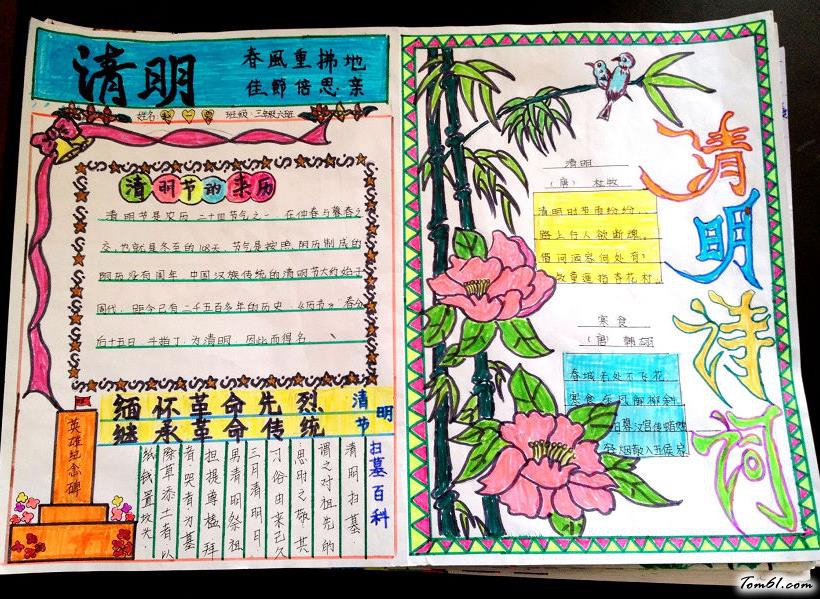 清明
春風重拂地
佳節倍思亲
姓名: 班级:三年级六班
清明节的来历
清明节是农历二十四节气之一 在仲春与暮春之
交,也就是冬至的108天.节气是按照阴历制成的
阴历没有周年.中国汉族传统的清明节大约始于
周代.距今已有二千五百多年的历史.《历书》:春分
后十五日.斗指丁,为清明.因此而得名.
缅怀革命先烈
继承革命传统
英雄纪念碑
清明节
扫墓百科
清明扫墓.
谓之对祖先的
思时之敬其
习俗由来已久
三月清明日
男清明祭祖
担提尊榼拜
者.哭者为墓
除草添土者以
纸钱置坟头
清明
(唐) 杜牧
清明时节雨纷纷..
路上行人欲断魂.
借问酒家何处有?
牧童遥指杏花村.
寒食
(唐) 韩翃
春城无处不飞花
寒食东风御柳斜.
日暮汉宫传蜡烛
轻烟散入五侯家
清明诗词
Tom61.com